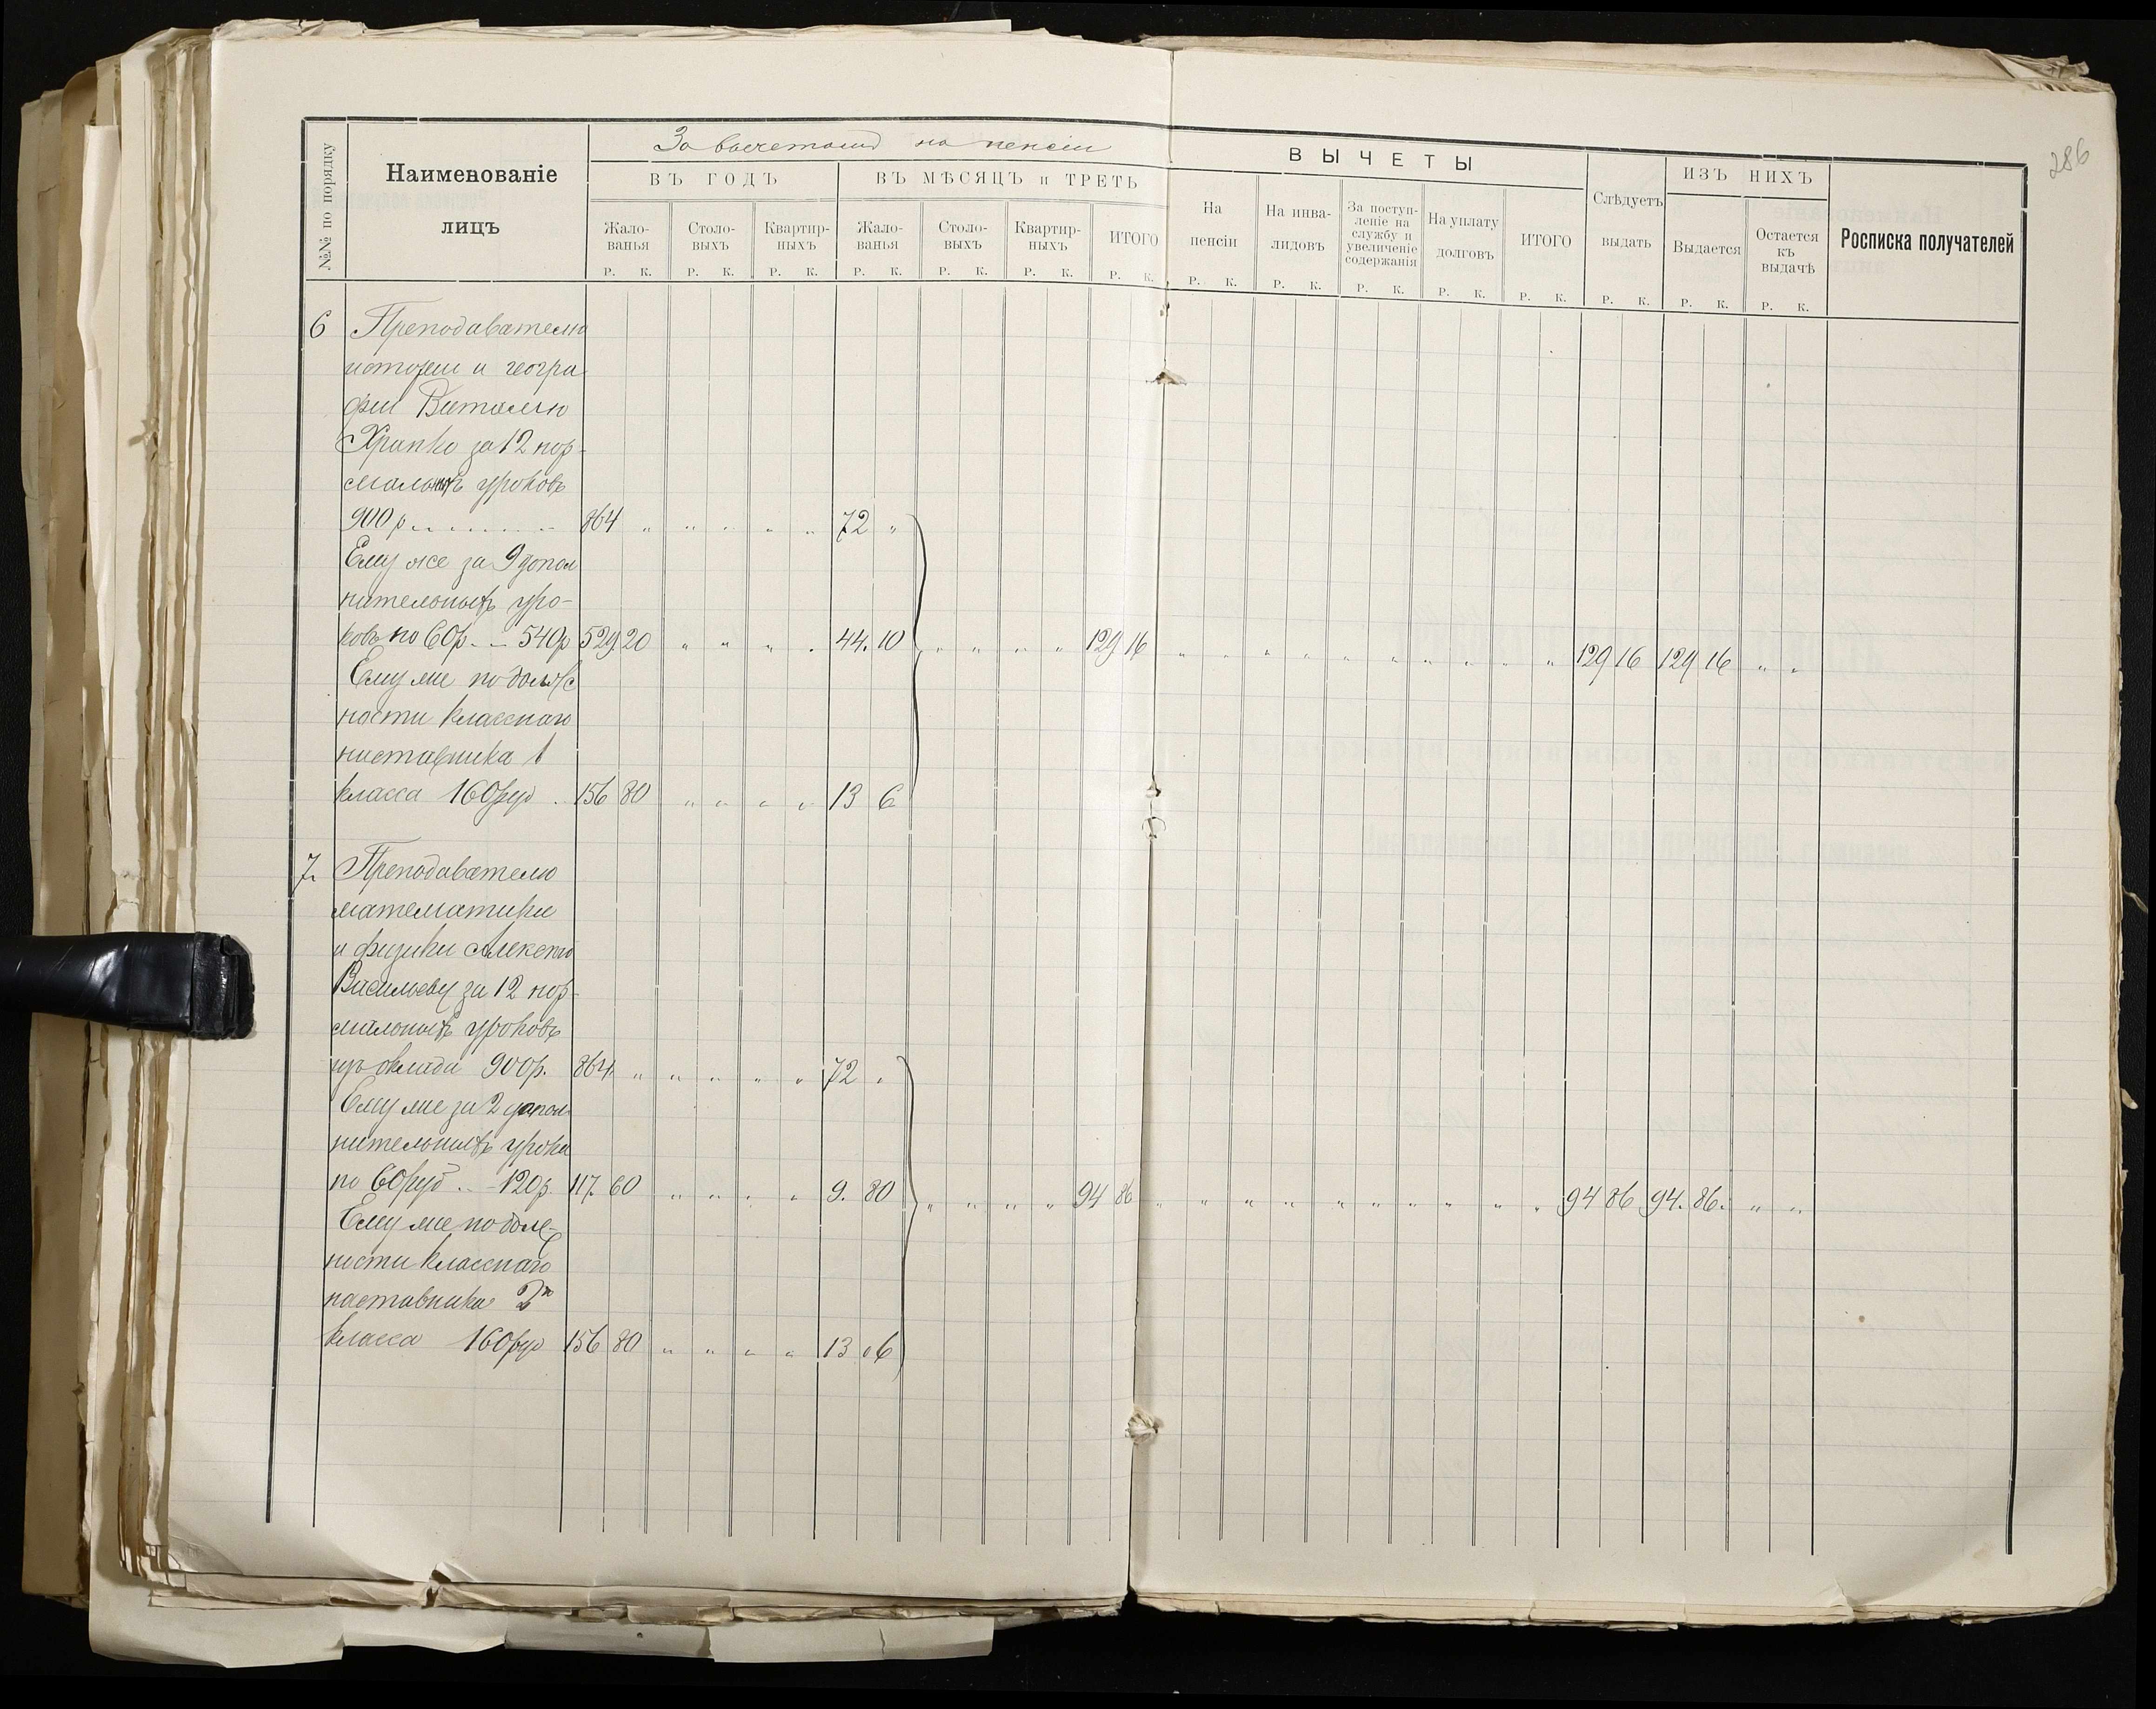 286
За вычетомъ на пенсіи
№№ по порядку
Наименованіе
лицъ
ВЪ ГОДЪ
ВЪ МѢСЯЦЪ и ТРЕТЬ
ВЫЧЕТЫ
ИЗЪ НИХЪ
Жало-
ванья
Столо-
выхъ
Квартир-
ныхъ
Жало-
ванья
Столо-
выхъ
Квартир-
ныхъ
ИТОГО
На
пенсіи
На инва-
лидовъ
За поступ-
леніе на
службу и
увеличеніе
содержанія
На уплату
долговъ
ИТОГО
Слѣдуетъ
выдать
Выдается
Остается
къ
выдачѣ
Росписка получателей
Р. К. Р. К. Р. К. Р. К. Р. К. Р. К. Р. К. Р. К. Р. К. Р. К. Р. К. Р. К. Р. К. Р. К. Р. К.
6 Преподавателю
исторіи и геогра
фіи Виталію
Храпко за 12 нор-
мальныхъ уроковъ
900 р. . . . . . . 864 " " " " " 72 "
Ему же за 9 допол
нительныхъ уро-
ковъ по 60 р. — 540 р 529 20 " " " " 44. 10 " " " " 129 16 " " " " " " " " " " 129 16 129 16 " "
Ему же по долж
ности класснаго
наставника 1
класса 160 руб . 156 80 " " " " 13 6
7. Преподавателю
математики
и физики Алексѣю
Васильеву за 12 нор-
мальныхъ уроковъ
изъ оклада 900 р. 864. " " " " " 72 "
Ему же за 2 допол
нительныхъ урока
по 60 руб .. — 120 р. 117. 60 " " " " 9. 80 " " " " 94 86 " " " " " " " " " " 94 86 94. 86. " "
Ему же по долж-
ности класснаго
наставника 2го
класса 160 руб 156 80 " " " " 13 06